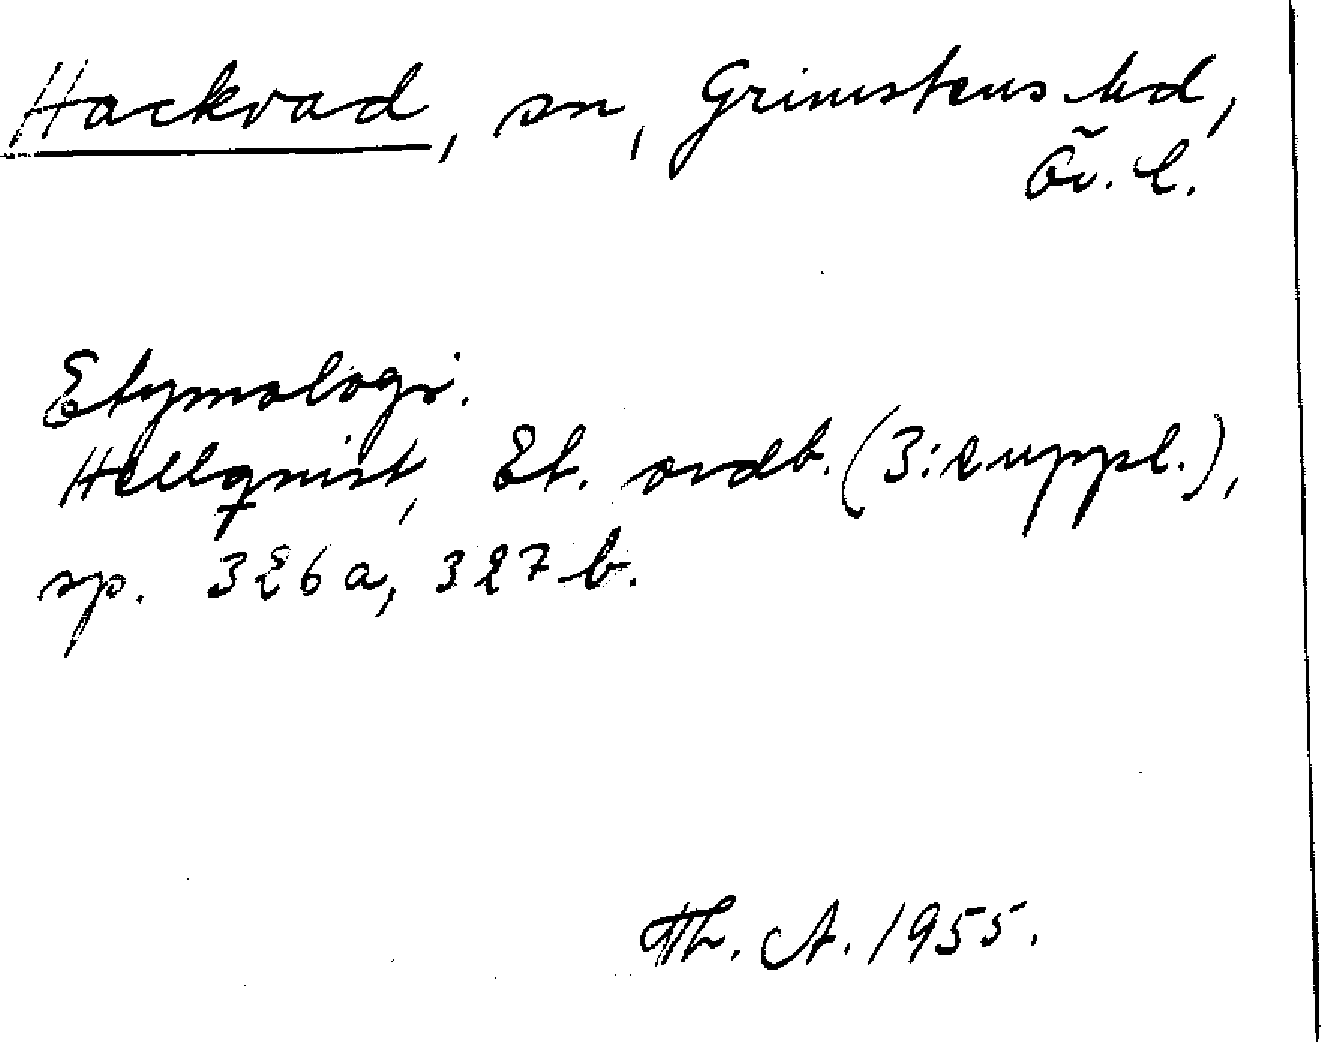 Hackvad, sn, Grimstens hd,
Ör. l.
Etymologi.
Hellquist, Et. ordb. (3: suppl.),
sp. 326a, 327b.
Th. A. 1955.